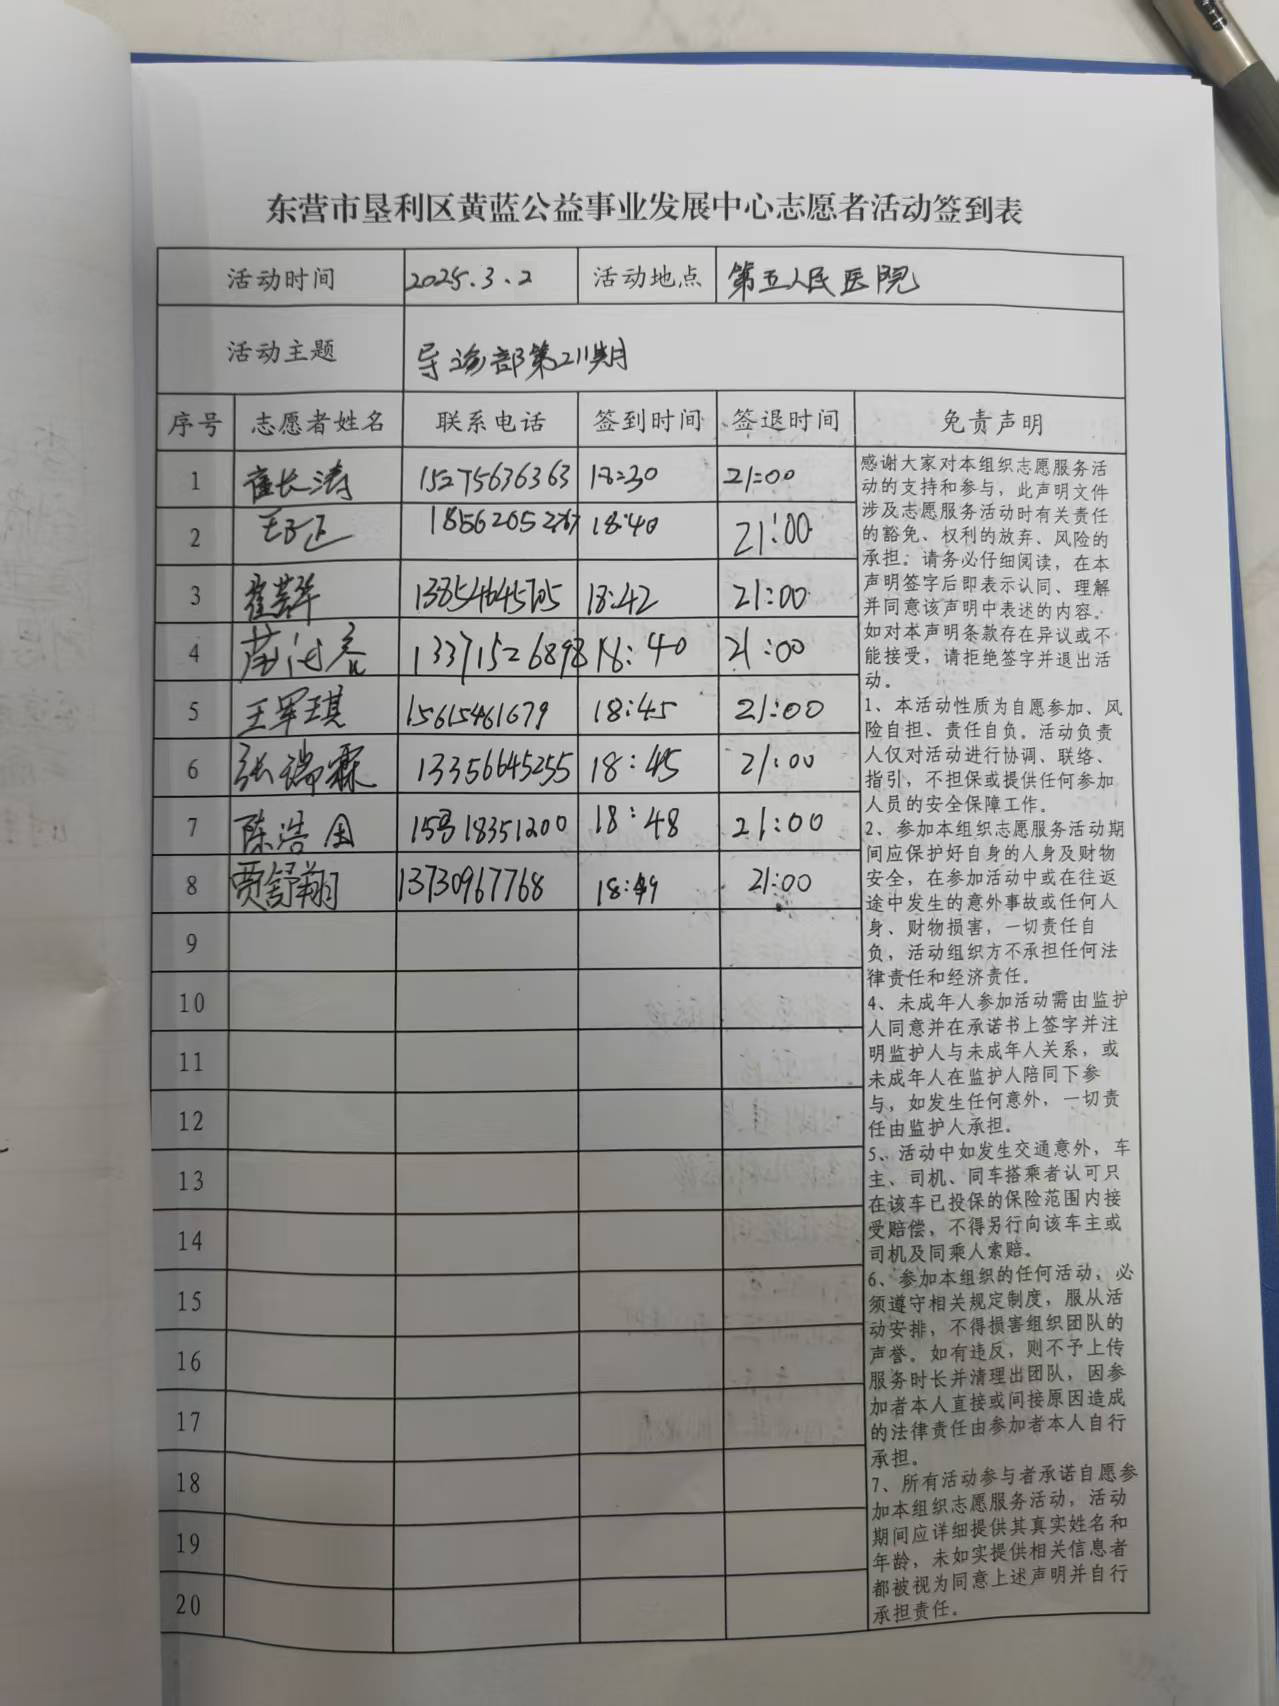 东营市垦利区黄蓝公益事业发展中心志愿者活动签到表
活动时间 2025.3.2 活动地点 第五人民医院
活动主题 导诊部第211期
序号 志愿者姓名 联系电话 签到时间 签退时间 免责声明
1 崔长涛 15275636363 18:30 21:00
2 18:40 21:00
3 18:42 21:00
4 18:40 21:00
5 王军琪 15615461679 18:45 21:00
6 张瑞霖 13356645255 18:45 21:00
7 陈浩 18:48 21:00
8 贾舒翔 13730967768 18:49 21:00
9
10
11
12
13
14
15
16
17
18
19
20
感谢大家对本组织志愿服务活
动的支持和参与，此声明文件
涉及志愿服务活动时有关责任
的豁免、权利的放弃、风险的
承担。请务必仔细阅读，在本
声明签字后即表示认同、理解
并同意该声明中表述的内容。
如对本声明条款存在异议或不
能接受，请拒绝签字并退出活
动。
1、本活动性质为自愿参加、风
险自担、责任自负。活动负责
人仅对活动进行协调、联络、
指引，不担保或提供任何参加
人员的安全保障工作。
2、参加本组织志愿服务活动期
间应保护好自身的人身及财物
安全，在参加活动中或在往返
途中发生的意外事故或任何人
身、财物损害，一切责任自
负，活动组织方不承担任何法
律责任和经济责任。
4、未成年人参加活动需由监护
人同意并在承诺书上签字并注
明监护人与未成年人关系，或
未成年人在监护人陪同下参
与，如发生任何意外，一切责
任由监护人承担。
5、活动中如发生交通意外，车
主、司机、同车搭乘者认可只
在该车已投保的保险范围内接
受赔偿，不得另行向该车主或
司机及同乘人索赔。
6、参加本组织的任何活动，必
须遵守相关规定制度，服从活
动安排，不得损害组织团队的
声誉。如有违反，则不予上传
服务时长并清理出团队，因参
加者本人直接或间接原因造成
的法律责任由参加者本人自行
承担。
7、所有活动参与者承诺自愿参
加本组织志愿服务活动，活动
期间应详细提供其真实姓名和
年龄，未如实提供相关信息者
都被视为同意上述声明并自行
承担责任。